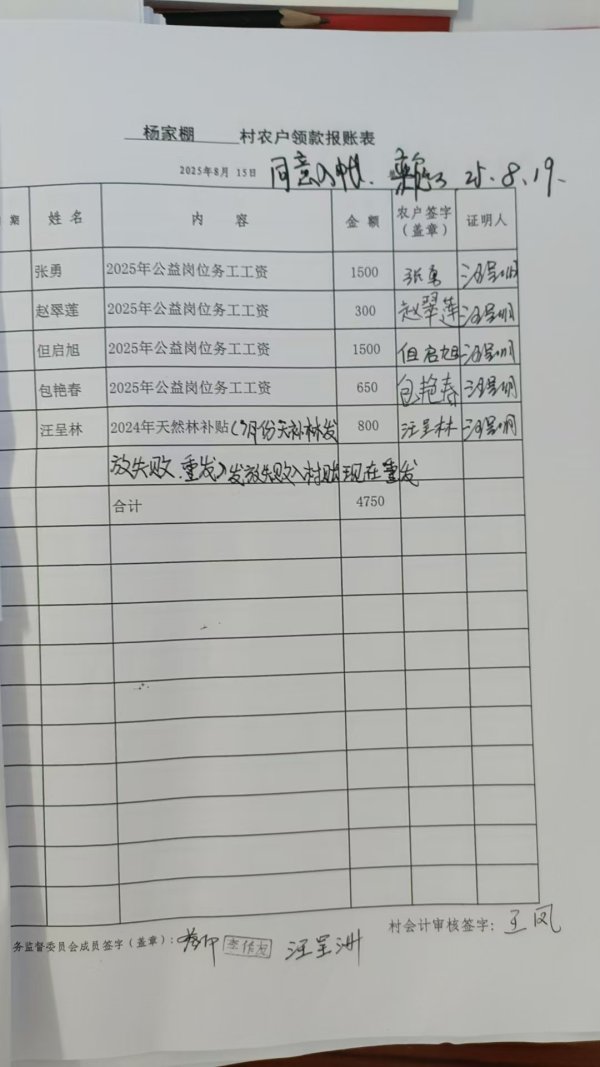 杨家棚 村农户领款报账表
2025年8月 15日 同意 25.8.19.
期 姓 名 内 容 金 额 农户签字（盖章） 证明人
张勇 2025年公益岗位务工工资 1500 张勇
赵翠莲 2025年公益岗位务工工资 300 赵翠莲
但启旭 2025年公益岗位务工工资 1500 但启旭
包艳春 2025年公益岗位务工工资 650 包艳春
汪呈林 2024年天然林补贴（7月份天补林发 800 汪呈林
放失败、重发）发放失败入村账现在重发
合计 4750
村会计审核签字：王凤
务监督委员会成员签字（盖章）： 李作友 汪呈洲